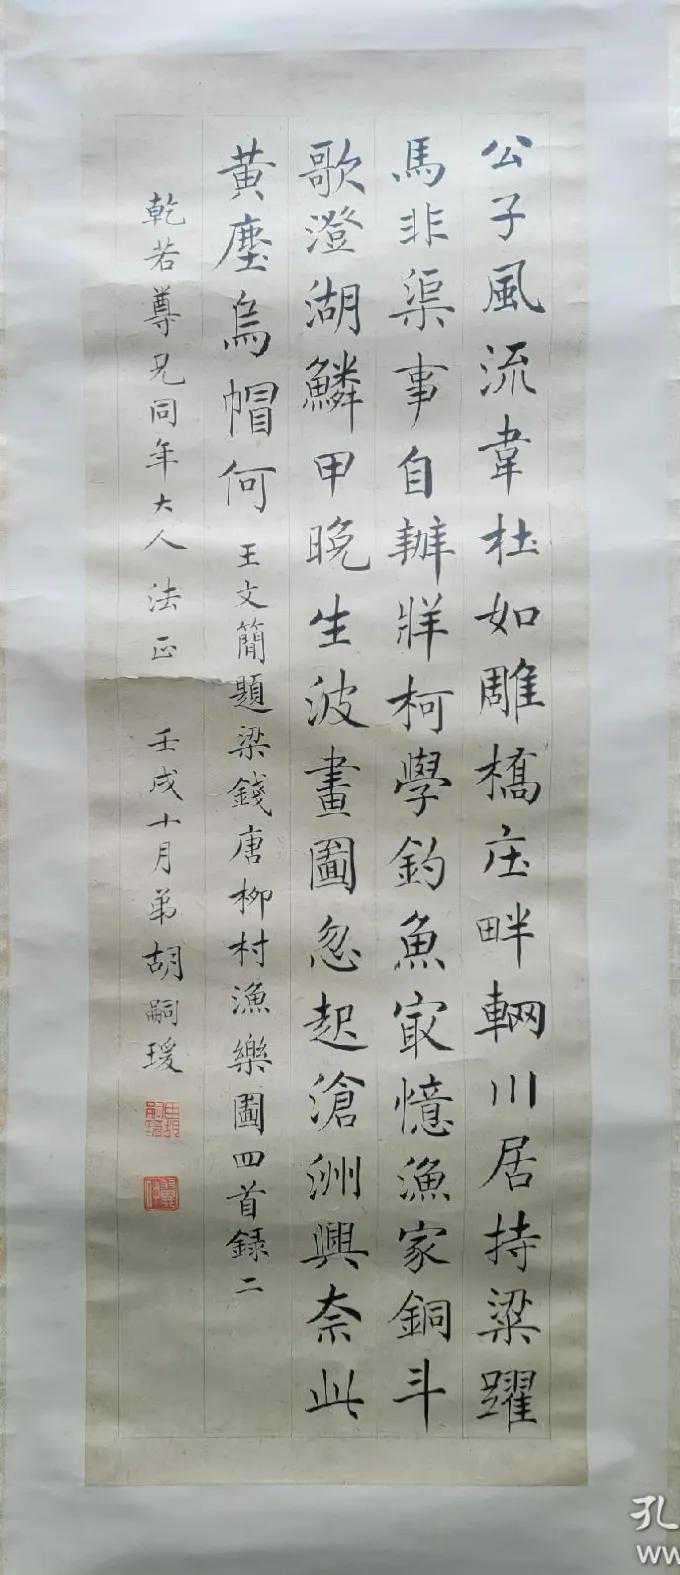 公子風流韋杜如雕橋庄畔輞川居持粱躍
馬非渠事自辦牂柯學釣魚㝡憶漁家銅斗
歌澄湖鱗甲晚生波畫圖忽起滄洲興奈此
黃塵烏帽何 王文簡題梁錢唐柳村漁樂圖四首錄二
乾若尊兄同年大人法正 壬戌十月弟胡嗣瑗
孔
ww